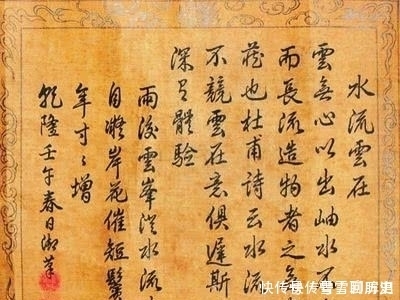 水流雲在
雲無心以出岫水不
而長流造物者之無
藏也杜甫詩云水流
不競雲在意俱遲斯
深足體驗
雨後雲峯澄水流
自凝岸花催短鬢
年寸〻增
乾隆壬午春日御筆